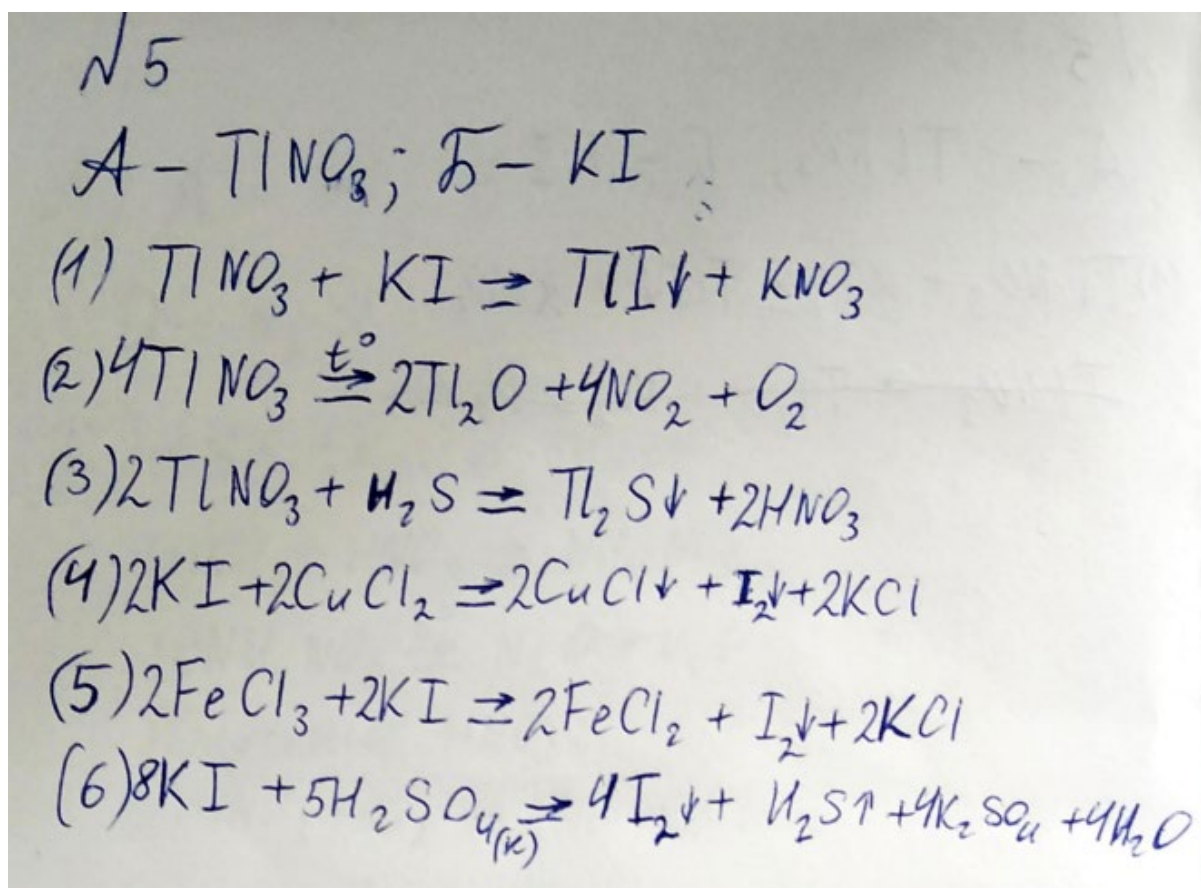 √5
А – TlNO₃; Б – KI
(1) TlNO₃ + KI ⇒ TlI↓ + KNO₃
(2) 4TlNO₃ t°⇒ 2Tl₂O + 4NO₂ + O₂
(3) 2TlNO₃ + H₂S ⇒ Tl₂S↓ + 2HNO₃
(4) 2KI + 2CuCl₂ ⇒ 2CuCl↓ + I₂↓ + 2KCl
(5) 2FeCl₃ + 2KI ⇒ 2FeCl₂ + I₂↓ + 2KCl
(6) 8KI + 5H₂SO₄(к) ⇒ 4I₂↓ + H₂S↑ + 4K₂SO₄ + 4H₂O